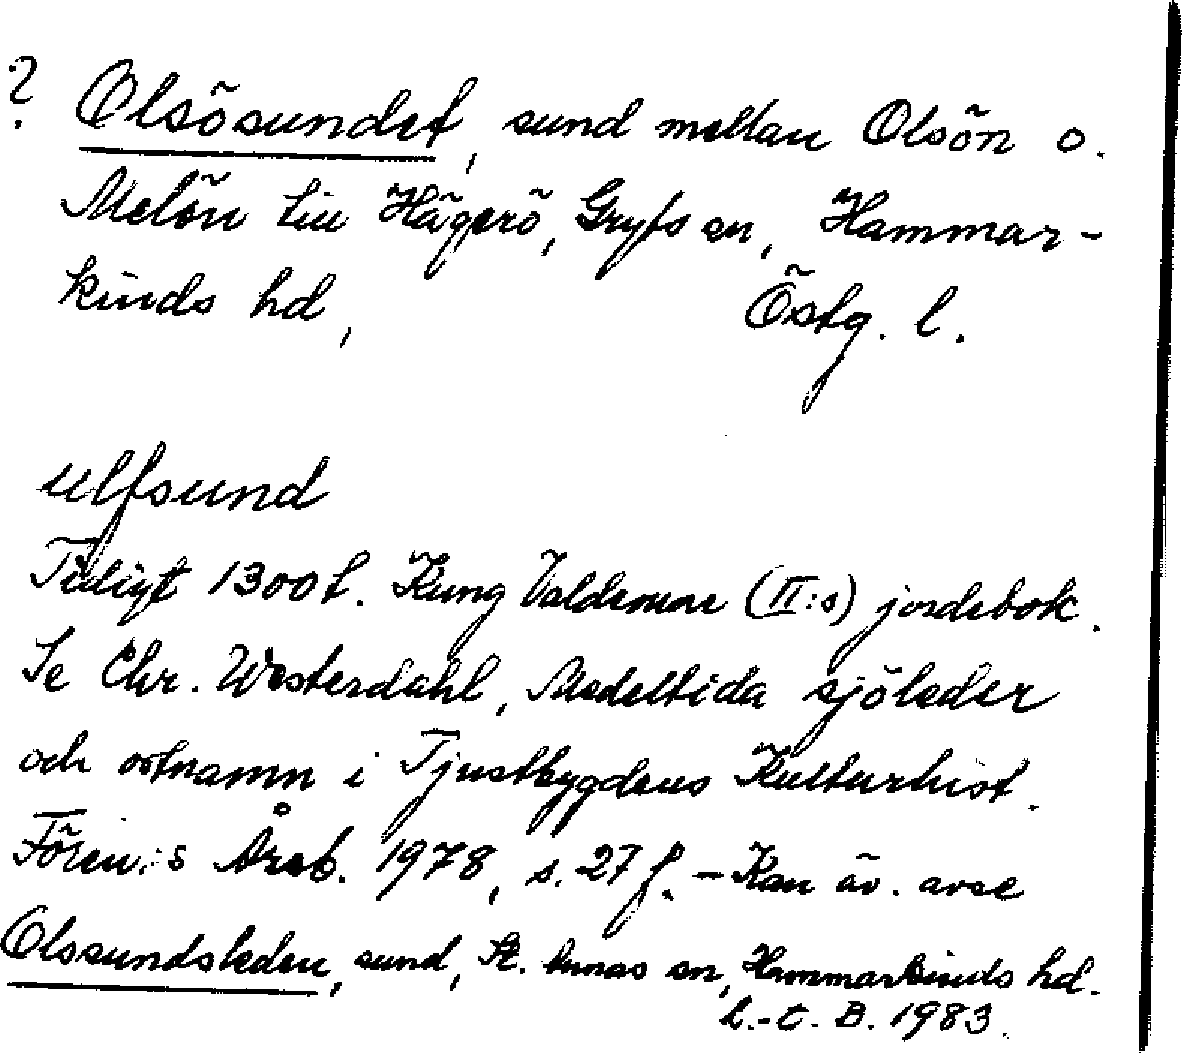 ? Olsösundet, sund mellan Olsön o.
Melön tiu Hägerö, Gryts sn, Hammar-
kinds hd, Östg. l.
ulfsund
Tidigt 1300 t. Kung Valdemar (II:s) jordebok.
Se Chr. Westerdahl, Medeltida sjöleder
och ortnamn i Tjustbygdens Kulturhist.
Fören:s Årsb. 1978, s. 27 f. - Kan äv. avse
Olssundsleden, sund, St. Annas sn, Hammarkinds hd.
L.-E. B. 1983.